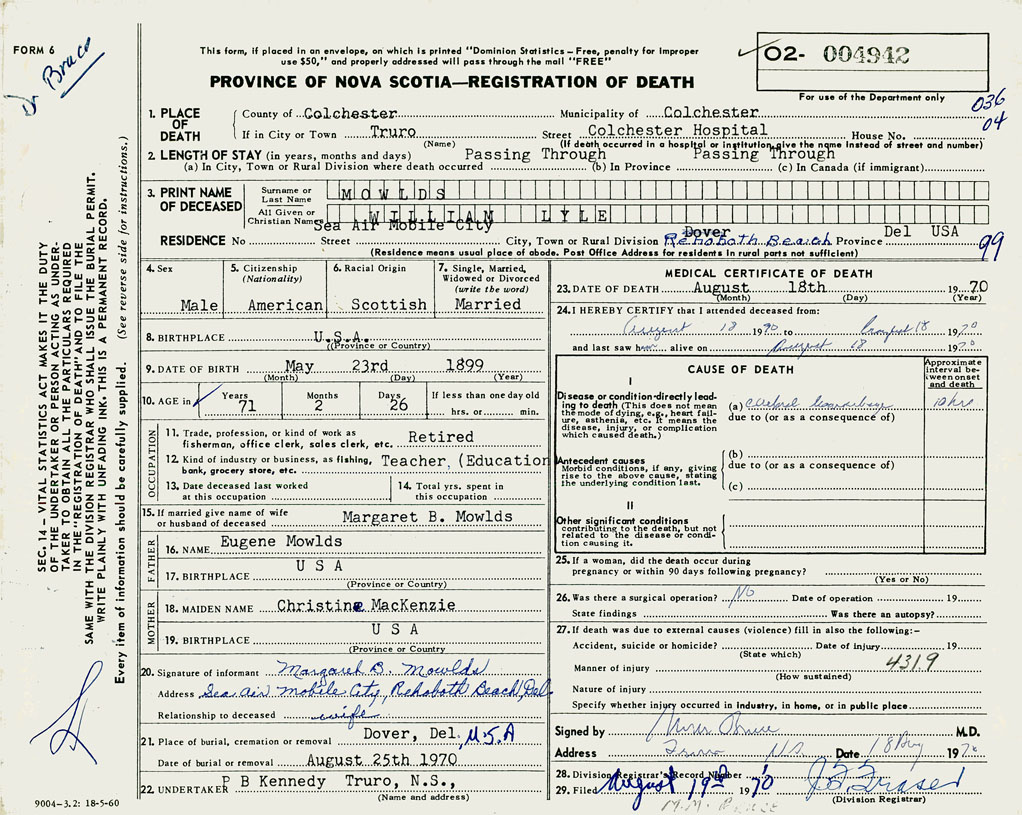 FORM 6
Dr Bruce
This form, if placed in an envelope, on which is printed "Dominion Statistics – Free, penalty for improper
use $50," and properly addressed will pass through the mail "FREE"
PROVINCE OF NOVA SCOTIA—REGISTRATION OF DEATH
02- 004942
For use of the Department only
036
04
1. PLACE OF DEATH
County of Colchester Municipality of Colchester
If in City or Town Truro Street Colchester Hospital House No.
(Name) (If death occurred in a hospital or institution give the name instead of street and number)
2. LENGTH OF STAY (in years, months and days) Passing Through Passing Through
(a) In City, Town or Rural Division where death occurred (b) In Province (c) In Canada (if immigrant)
3. PRINT NAME OF DECEASED
Surname or Last Name MOWLDS
All Given or Christian Names WILLIAM LYLE
Sea Air Mobile City Dover Del USA
RESIDENCE No Street City, Town or Rural Division Rehoboth Beach Province 99
(Residence means usual place of abode. Post Office Address for residents in rural parts not sufficient)
4. Sex Male
5. Citizenship (Nationality) American
6. Racial Origin Scottish
7. Single, Married, Widowed or Divorced (write the word) Married
8. BIRTHPLACE U.S.A.
(Province or Country)
9. DATE OF BIRTH May 23rd 1899
(Month) (Day) (Year)
10. AGE in Years 71 Months 2 Days 26 If less than one day old
hrs. or min.
OCCUPATION
11. Trade, profession, or kind of work as
fisherman, office clerk, sales clerk, etc. Retired
12. Kind of industry or business, as fishing,
bank, grocery store, etc. Teacher, (Education
13. Date deceased last worked
at this occupation
14. Total yrs. spent in
this occupation
15. If married give name of wife
or husband of deceased Margaret B. Mowlds
FATHER
16. NAME Eugene Mowlds
17. BIRTHPLACE U S A
(Province or Country)
MOTHER
18. MAIDEN NAME Christine MacKenzie
19. BIRTHPLACE U S A
(Province or Country
20. Signature of informant Margaret B. Mowlds
Address Sea Air Mobile City, Rehoboth Beach, Del.
Relationship to deceased wife
21. Place of burial, cremation or removal Dover, Del. U.S.A
Date of burial or removal August 25th 1970
22. UNDERTAKER P B Kennedy Truro, N.S.,
(Name and address)
MEDICAL CERTIFICATE OF DEATH
23. DATE OF DEATH August 18th 1970
(Month) (Day) (Year)
24. I HEREBY CERTIFY that I attended deceased from:
August 18 1970 to August 18 1970
and last saw him alive on August 18 1970
CAUSE OF DEATH
Approximate interval between onset and death
I
Disease or condition directly leading to death (This does not mean
the mode of dying, e.g., heart failure, asthenia, etc. It means the
disease, injury, or complication
which caused death.)
(a) cerebral hemorrhage 10 hrs
due to (or as a consequence of)
Antecedent causes
Morbid conditions, if any, giving
rise to the above cause, stating
the underlying condition last.
(b)
due to (or as a consequence of)
(c)
II
Other significant conditions
contributing to the death, but not
related to the disease or condition causing it.
25. If a woman, did the death occur during
pregnancy or within 90 days following pregnancy?
(Yes or No)
26. Was there a surgical operation? No Date of operation 19
State findings Was there an autopsy?
27. If death was due to external causes (violence) fill in also the following:–
Accident, suicide or homicide? Date of injury 19
(State which)
Manner of injury 4319
(How sustained)
Nature of injury
Specify whether injury occurred in industry, in home, or in public place
Signed by M.D.
Address Truro NS Date 18 Aug 1970
28. Division Registrar's Record Number
29. Filed August 19th 1970
(Division Registrar)
SEC. 14 – VITAL STATISTICS ACT MAKES IT THE DUTY
OF THE UNDERTAKER OR PERSON ACTING AS UNDERTAKER TO OBTAIN ALL THE PARTICULARS REQUIRED
IN THE "REGISTRATION OF DEATH" AND TO FILE THE
SAME WITH THE DIVISION REGISTRAR WHO SHALL ISSUE THE BURIAL PERMIT.
WRITE PLAINLY WITH UNFADING INK. THIS IS A PERMANENT RECORD.
Every item of information should be carefully supplied. (See reverse side for instructions.)
9004-3.2: 18-5-60